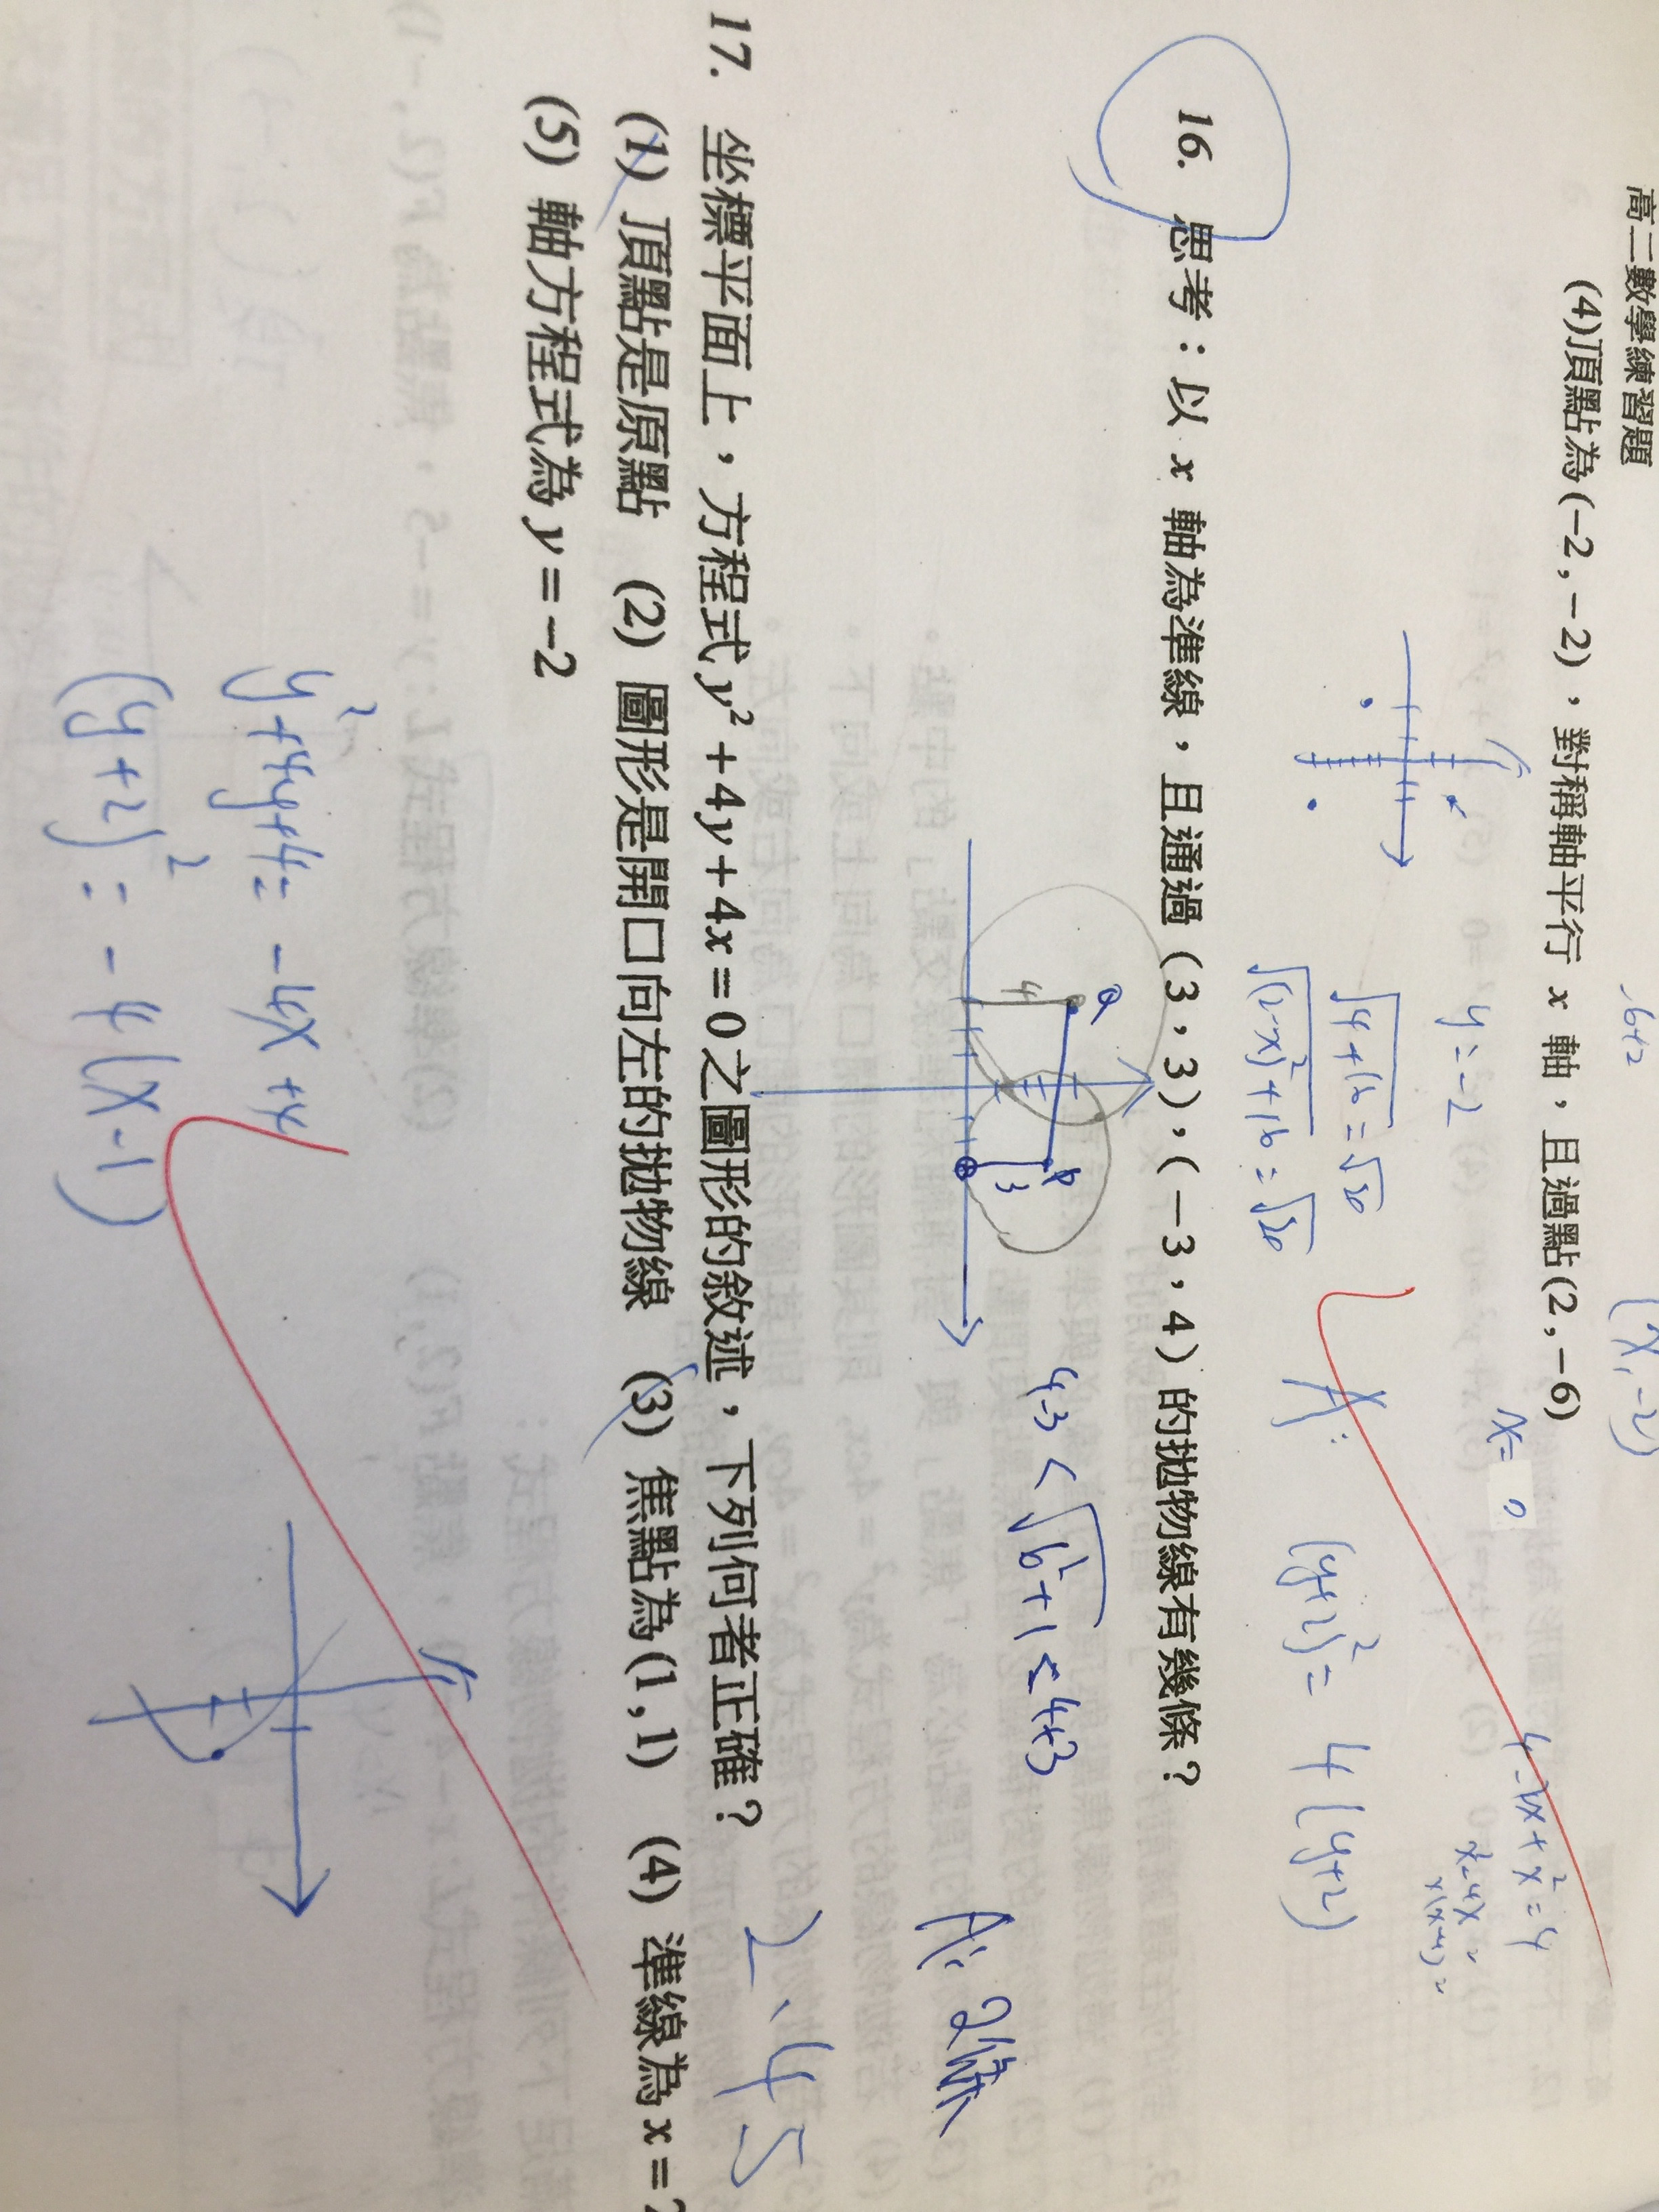 高二數學練習題
(4)頂點為(-2,-2),對稱軸平行 x 軸,且過點(2,-6)
-6+2
(x,-2)
x=0
y=-2
√4+16=√20
√(2-x)²+16=√20
4-4x+x²=4
x²-4x=
x(x-4)=
A:
(y+2)²=4(y+2)
16. 思考:以 x 軸為準線,且通過(3,3),(-3,4)的拋物線有幾條?
Q
4
P
3
4-3<√6²+1<4+3
A: 2條
17. 坐標平面上,方程式y²+4y+4x=0之圖形的敘述,下列何者正確?
2、4、5
(1) 頂點是原點 (2) 圖形是開口向左的拋物線 (3) 焦點為(1,1) (4) 準線為x=2
(5) 軸方程式為y=-2
y²+4y+4=-4x+4
(y+2)²=-4(x-1)